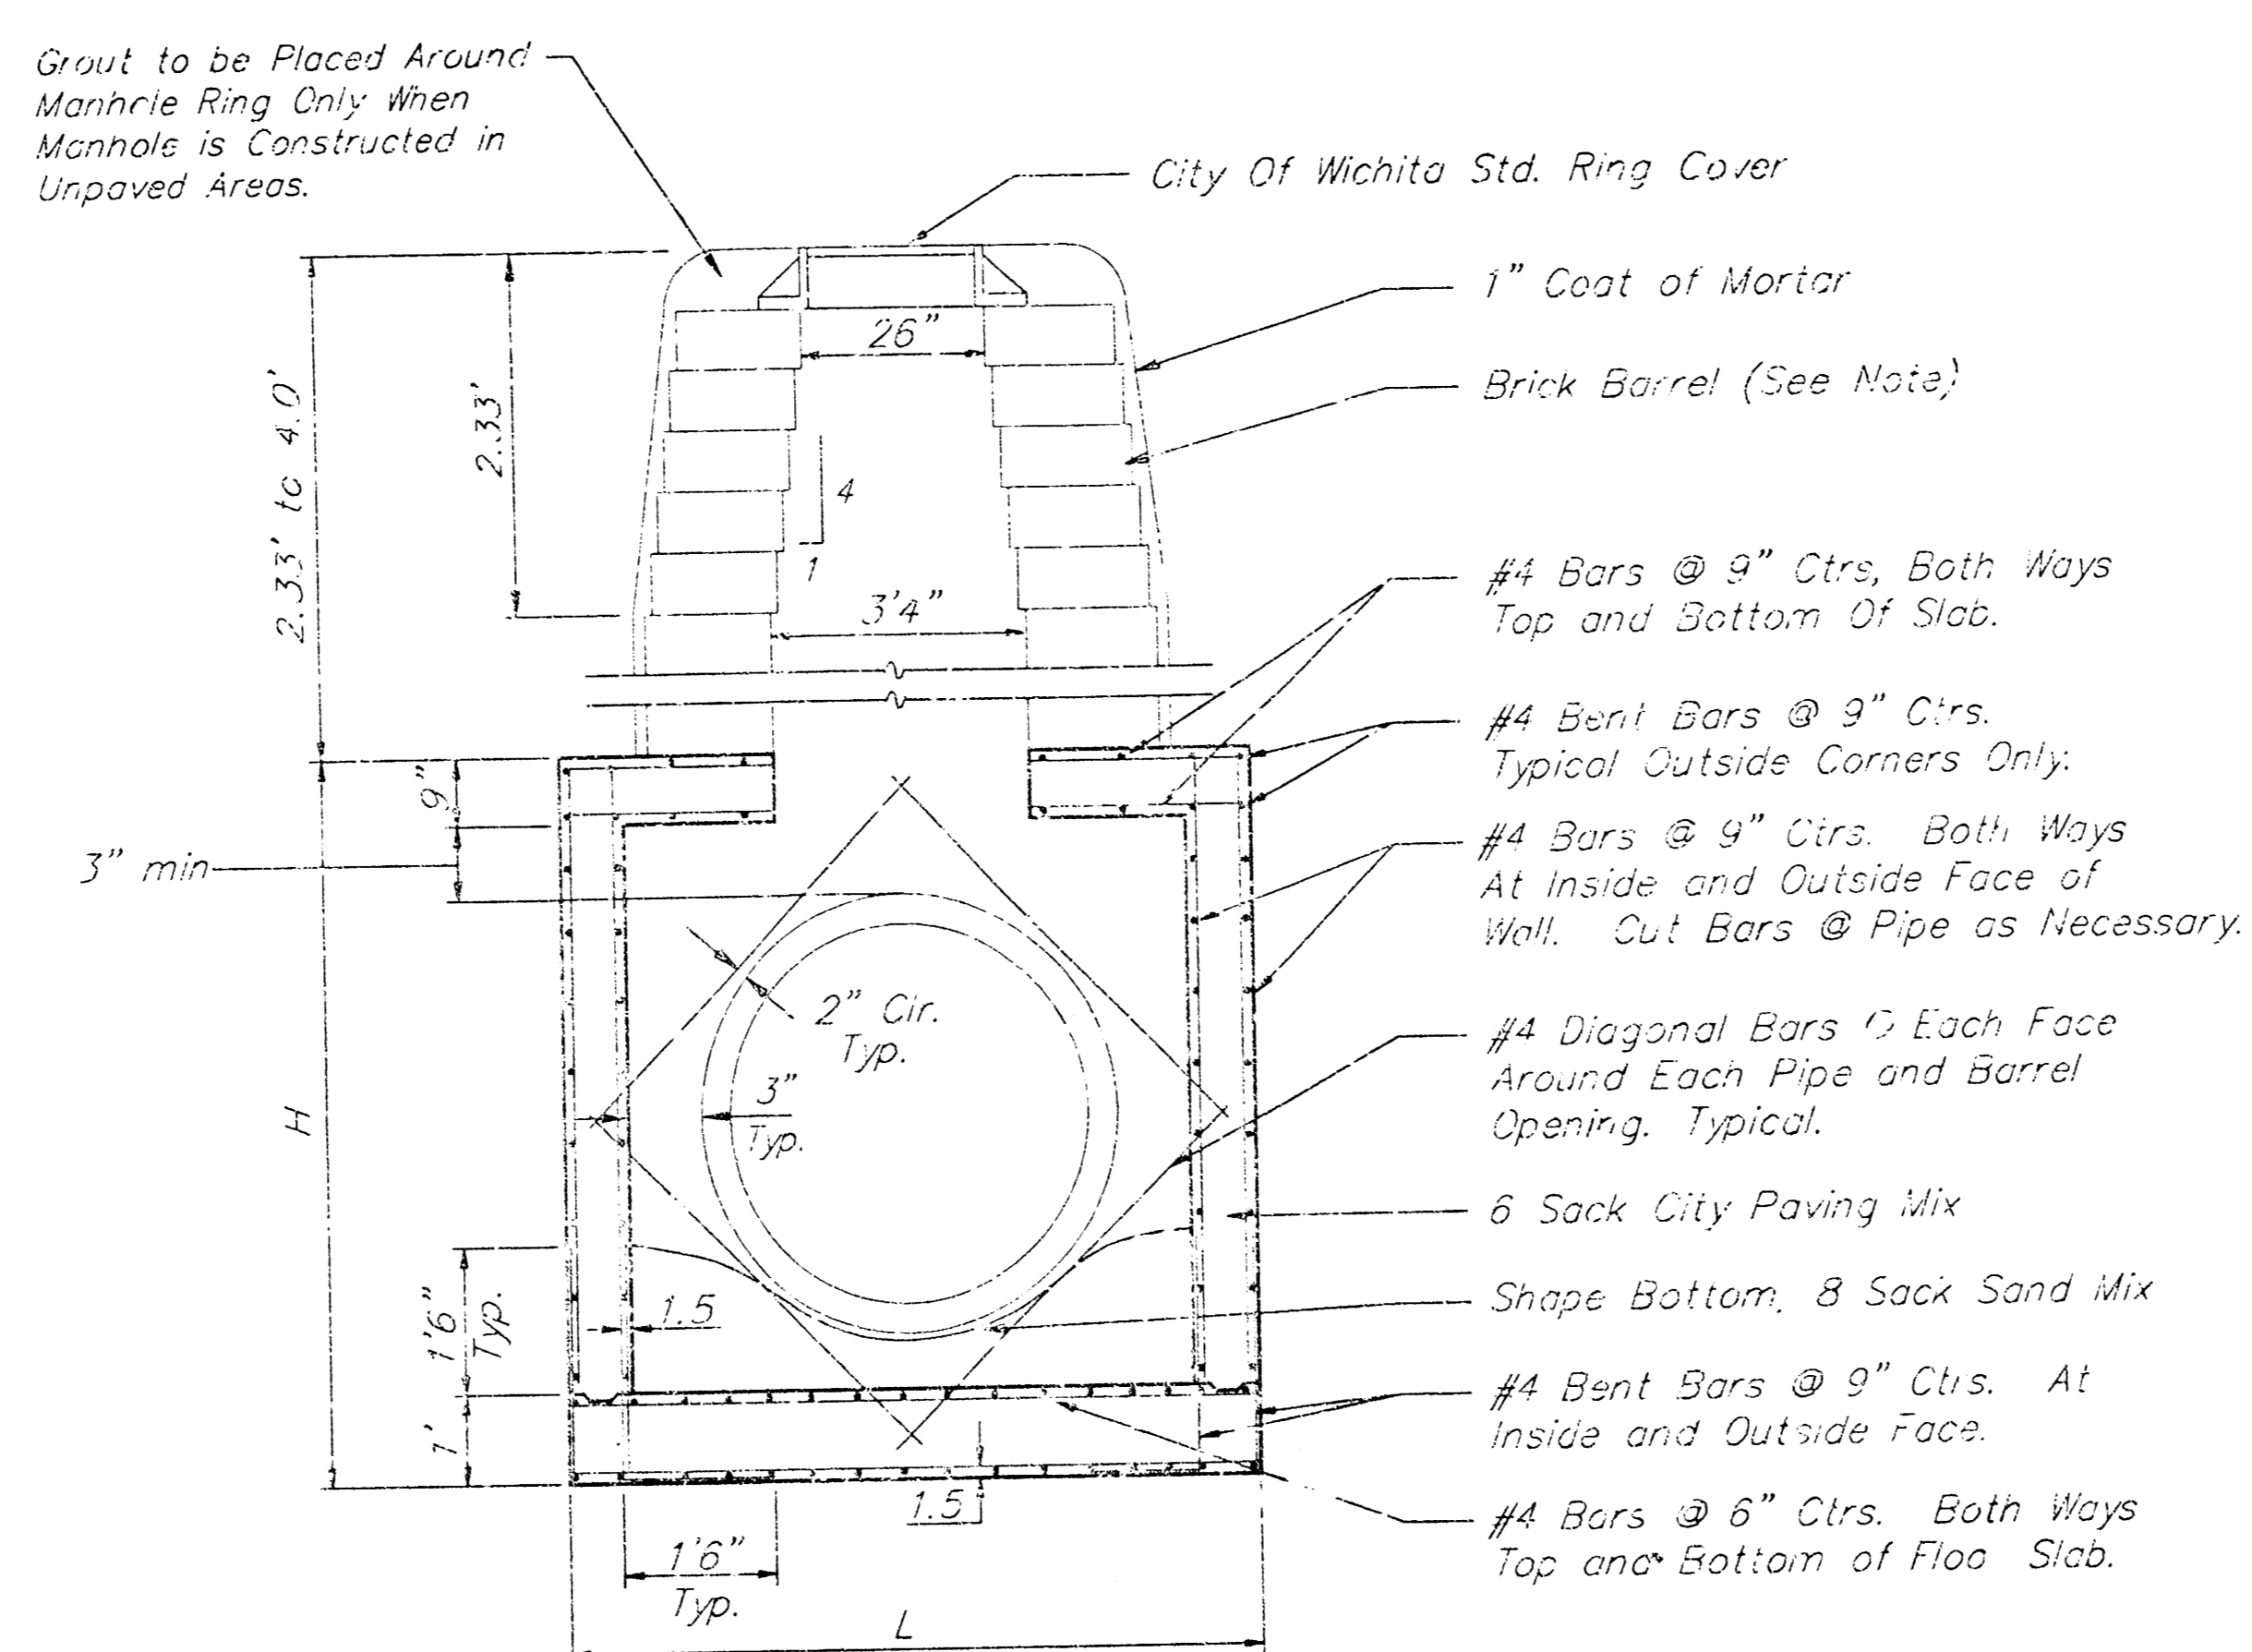 Grout to be Placed Around
Manhole Ring Only When
Manhole is Constructed in
Unpaved Areas.
City Of Wichita Std. Ring Cover
1" Coat of Mortar
26"
Brick Barrel (See Note)
2.33' to 4.0'
2.33'
4
1
#4 Bars @ 9" Ctrs, Both Ways
Top and Bottom Of Slab.
3'4"
#4 Bent Bars @ 9" Ctrs.
Typical Outside Corners Only.
9"
3" min
#4 Bars @ 9" Ctrs. Both Ways
At Inside and Outside Face of
Wall. Cut Bars @ Pipe as Necessary.
2" Clr.
Typ.
#4 Diagonal Bars @ Each Face
Around Each Pipe and Barrel
Opening. Typical.
3"
Typ.
H
6 Sack City Paving Mix
1'6"
Typ.
1.5
Shape Bottom, 8 Sack Sand Mix
#4 Bent Bars @ 9" Ctrs. At
Inside and Outside Face.
1'
1.5
#4 Bars @ 6" Ctrs. Both Ways
Top and Bottom of Floo Slab.
1'6"
Typ.
L